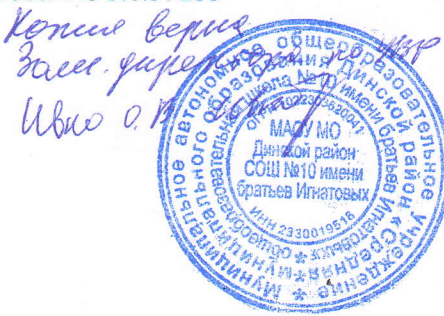 Копия верна
Зам. директора по УВР
Ивко О.В.
Муниципальное автономное общеобразовательное учреждение
муниципального образования Динской район «Средняя
общеобразовательная школа №10 имени братьев Игнатовых»
МАОУ МО
Динской район
СОШ №10 имени
братьев Игнатовых
ИНН 2330019518